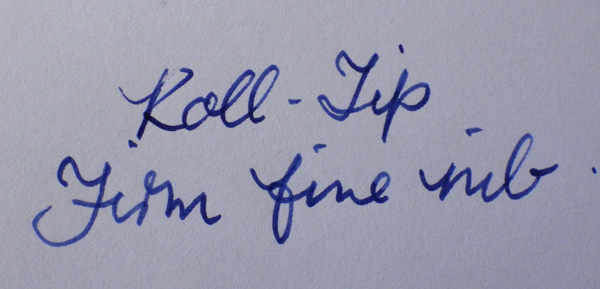 Roll-Tip
Firm fine nib.